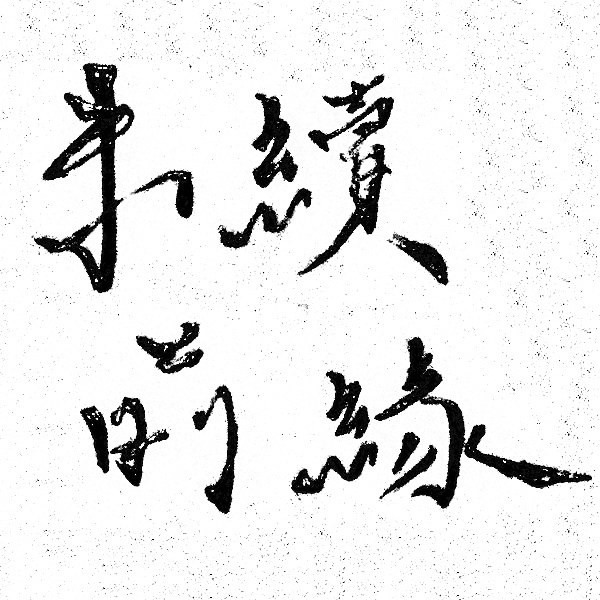 未續
前緣